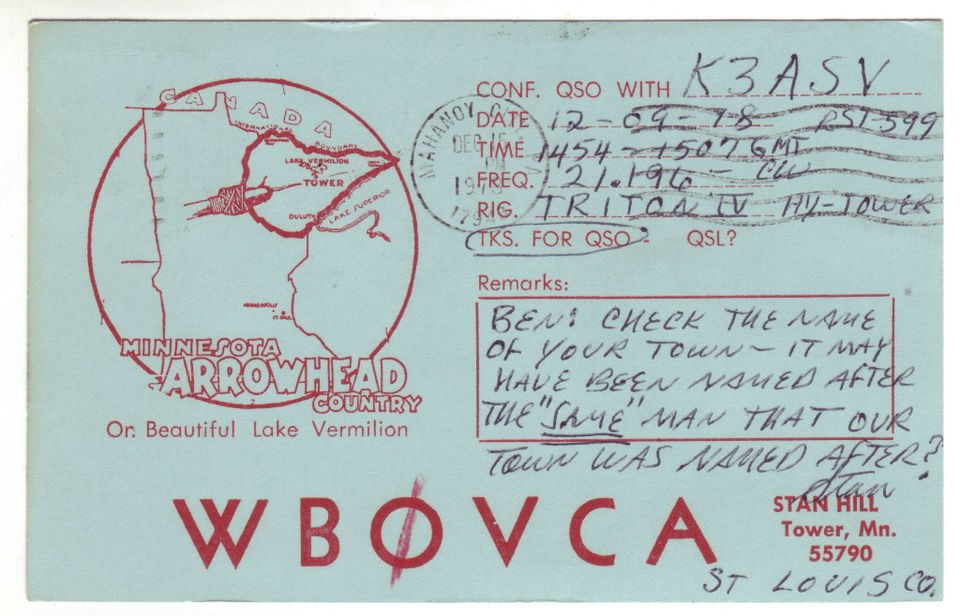 CANADA
INTERNATIONAL BOUNDARY
LAKE VERMILION
TOWER
DULUTH
LAKE SUPERIOR
MINNEAPOLIS
ST. PAUL
MINNESOTA
ARROWHEAD
COUNTRY
On Beautiful Lake Vermilion
CONF. QSO WITH K3ASV
DATE 12-09-78 RST-599
TIME 1454-1507 GMT
FREQ. 21.196- CW
RIG. TRITON IV HY-TOWER
TKS. FOR QSO - QSL?
MAHANOY
DEC 15
PM
197
Remarks:
BEN: CHECK THE NAME
OF YOUR TOWN - IT MAY
HAVE BEEN NAMED AFTER
THE "SAME" MAN THAT OUR
TOWN WAS NAMED AFTER?
Stan
WBØVCA
STAN HILL
Tower, Mn.
55790
ST LOUIS CO.